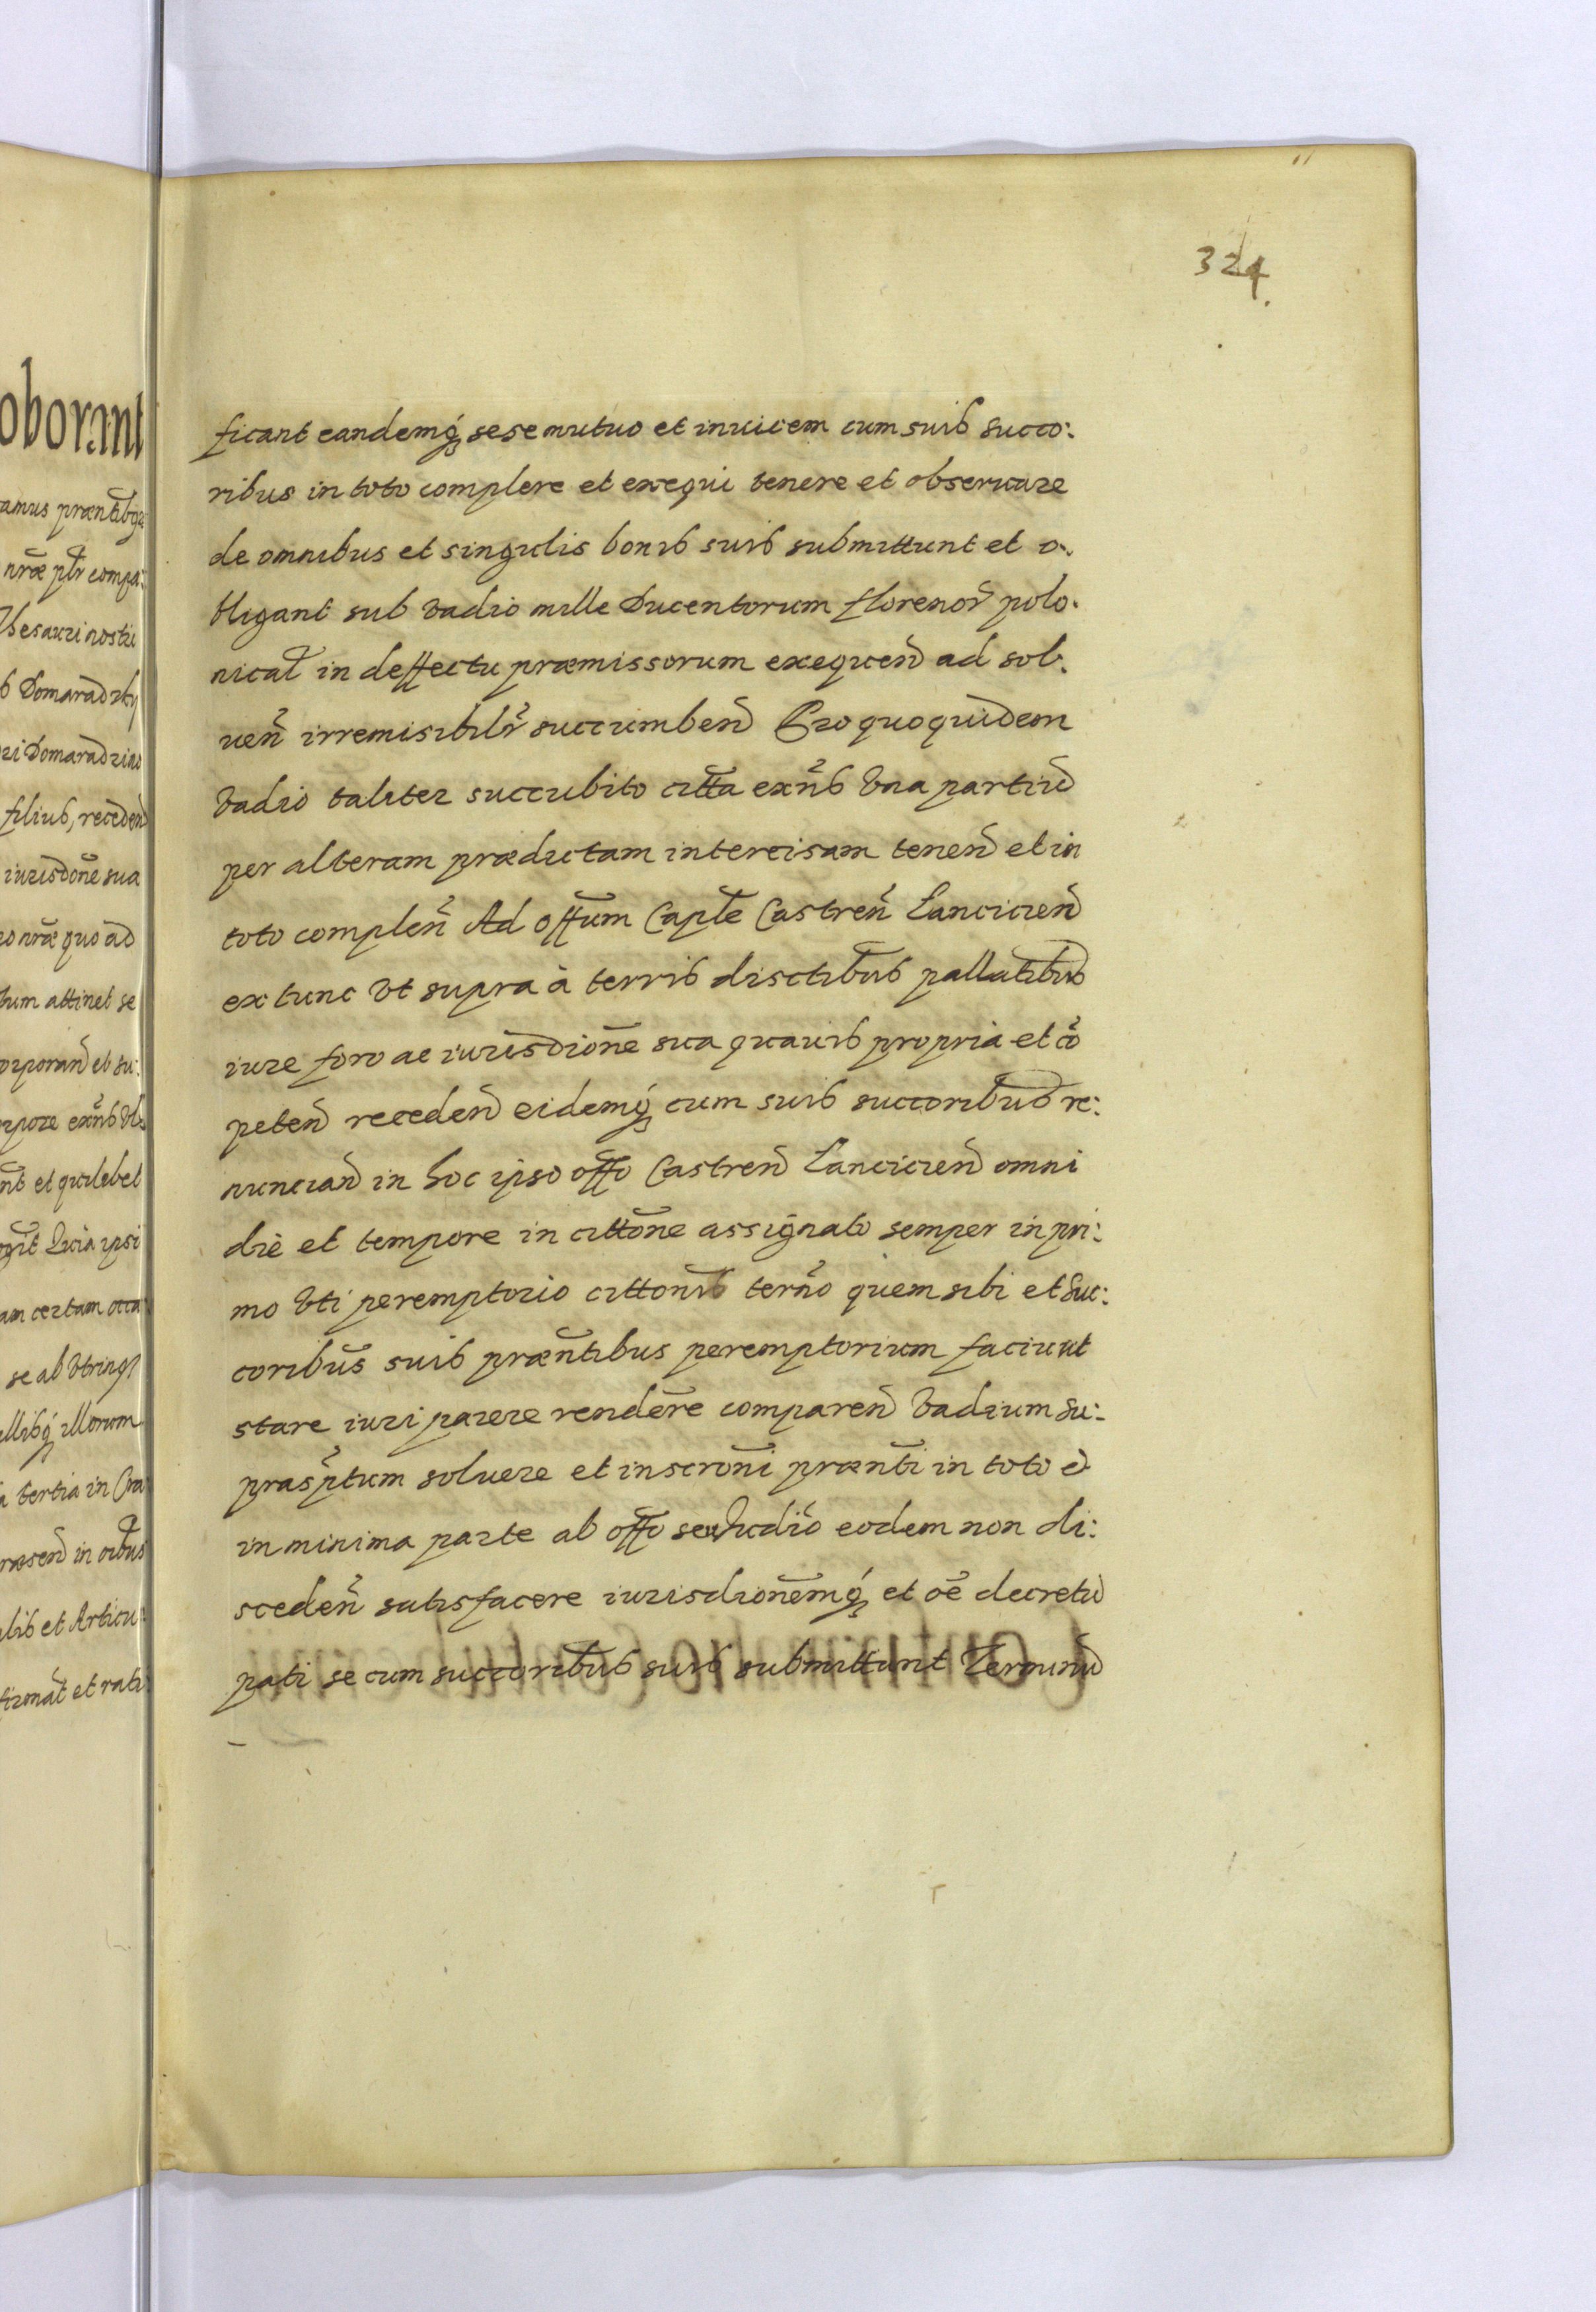 324
oborant
ficant eandemq́ sese mutuo et inuicem cum suis succo:
ribus in toto complere et exequi tenere et obseruare
de omnibus et singulis bonis suis submittunt et o.
bligant sub vadio mille Ducentorum florenor̃ polo.
nical̃ in deffectu præmissorum exequen̄ ad sol.
uen̄ irremisibilr̃ succumben̄ Pro quo quidem
vadio taliter succubito citta exn̄s vna partiū
per alteram prædictam intercisam tenen̄ et in
toto complen̄ Ad offūm Caple Castren̄ Lancicien̄
ex tunc vt supra à terris disctibus pallatibus
iure foro ac iurisdione sua quauis propria et cō
peten̄ receden̄ eidemq́ cum suis succoribus re:
nuncian̄ in hoc ipso offo Castren̄ Lancicien̄ omni
die et tempore in cittone assignato semper in pri:
mo vti peremptorio cittonis tern̄o quem sibi et suc:
coribus suis præntibus peremptorium faciunt
stare iuri parere rendere comparen̄ vadium su:
prasptum soluere et inscroni prænti in toto et
in minima parte ab offo seu Judio eodem non di:
sceden̄ satisfacere iurisdionemq́ et oē decretū
pati se cum succoribus suis submittunt Terminū
amus præntibq
nræ ptr compa:
Thesauri nostri
Domaradzky
ri Domaradzino
filius, receden̄
iurisdone sua
nræ quo ad
tum attinet se
orporan̄ et su:
rpore exn̄s vb
et quilebet
Licia ipsi
am certam occa
se ab vtrinq
illibq́ illorum
tertia in Cra
ræsen̄ in oībus
lib et Articu
firmāt et rati